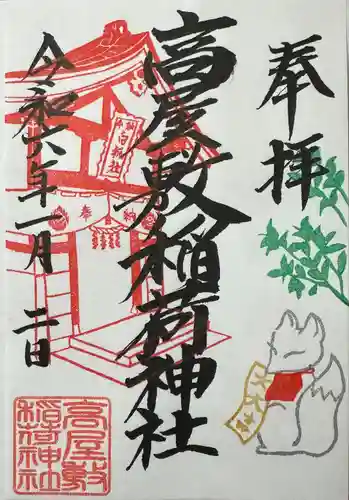 奉拝
高屋敷稲荷神社
令和六年一月二日
白稲荷
奉
納
高屋敷
稲荷神社